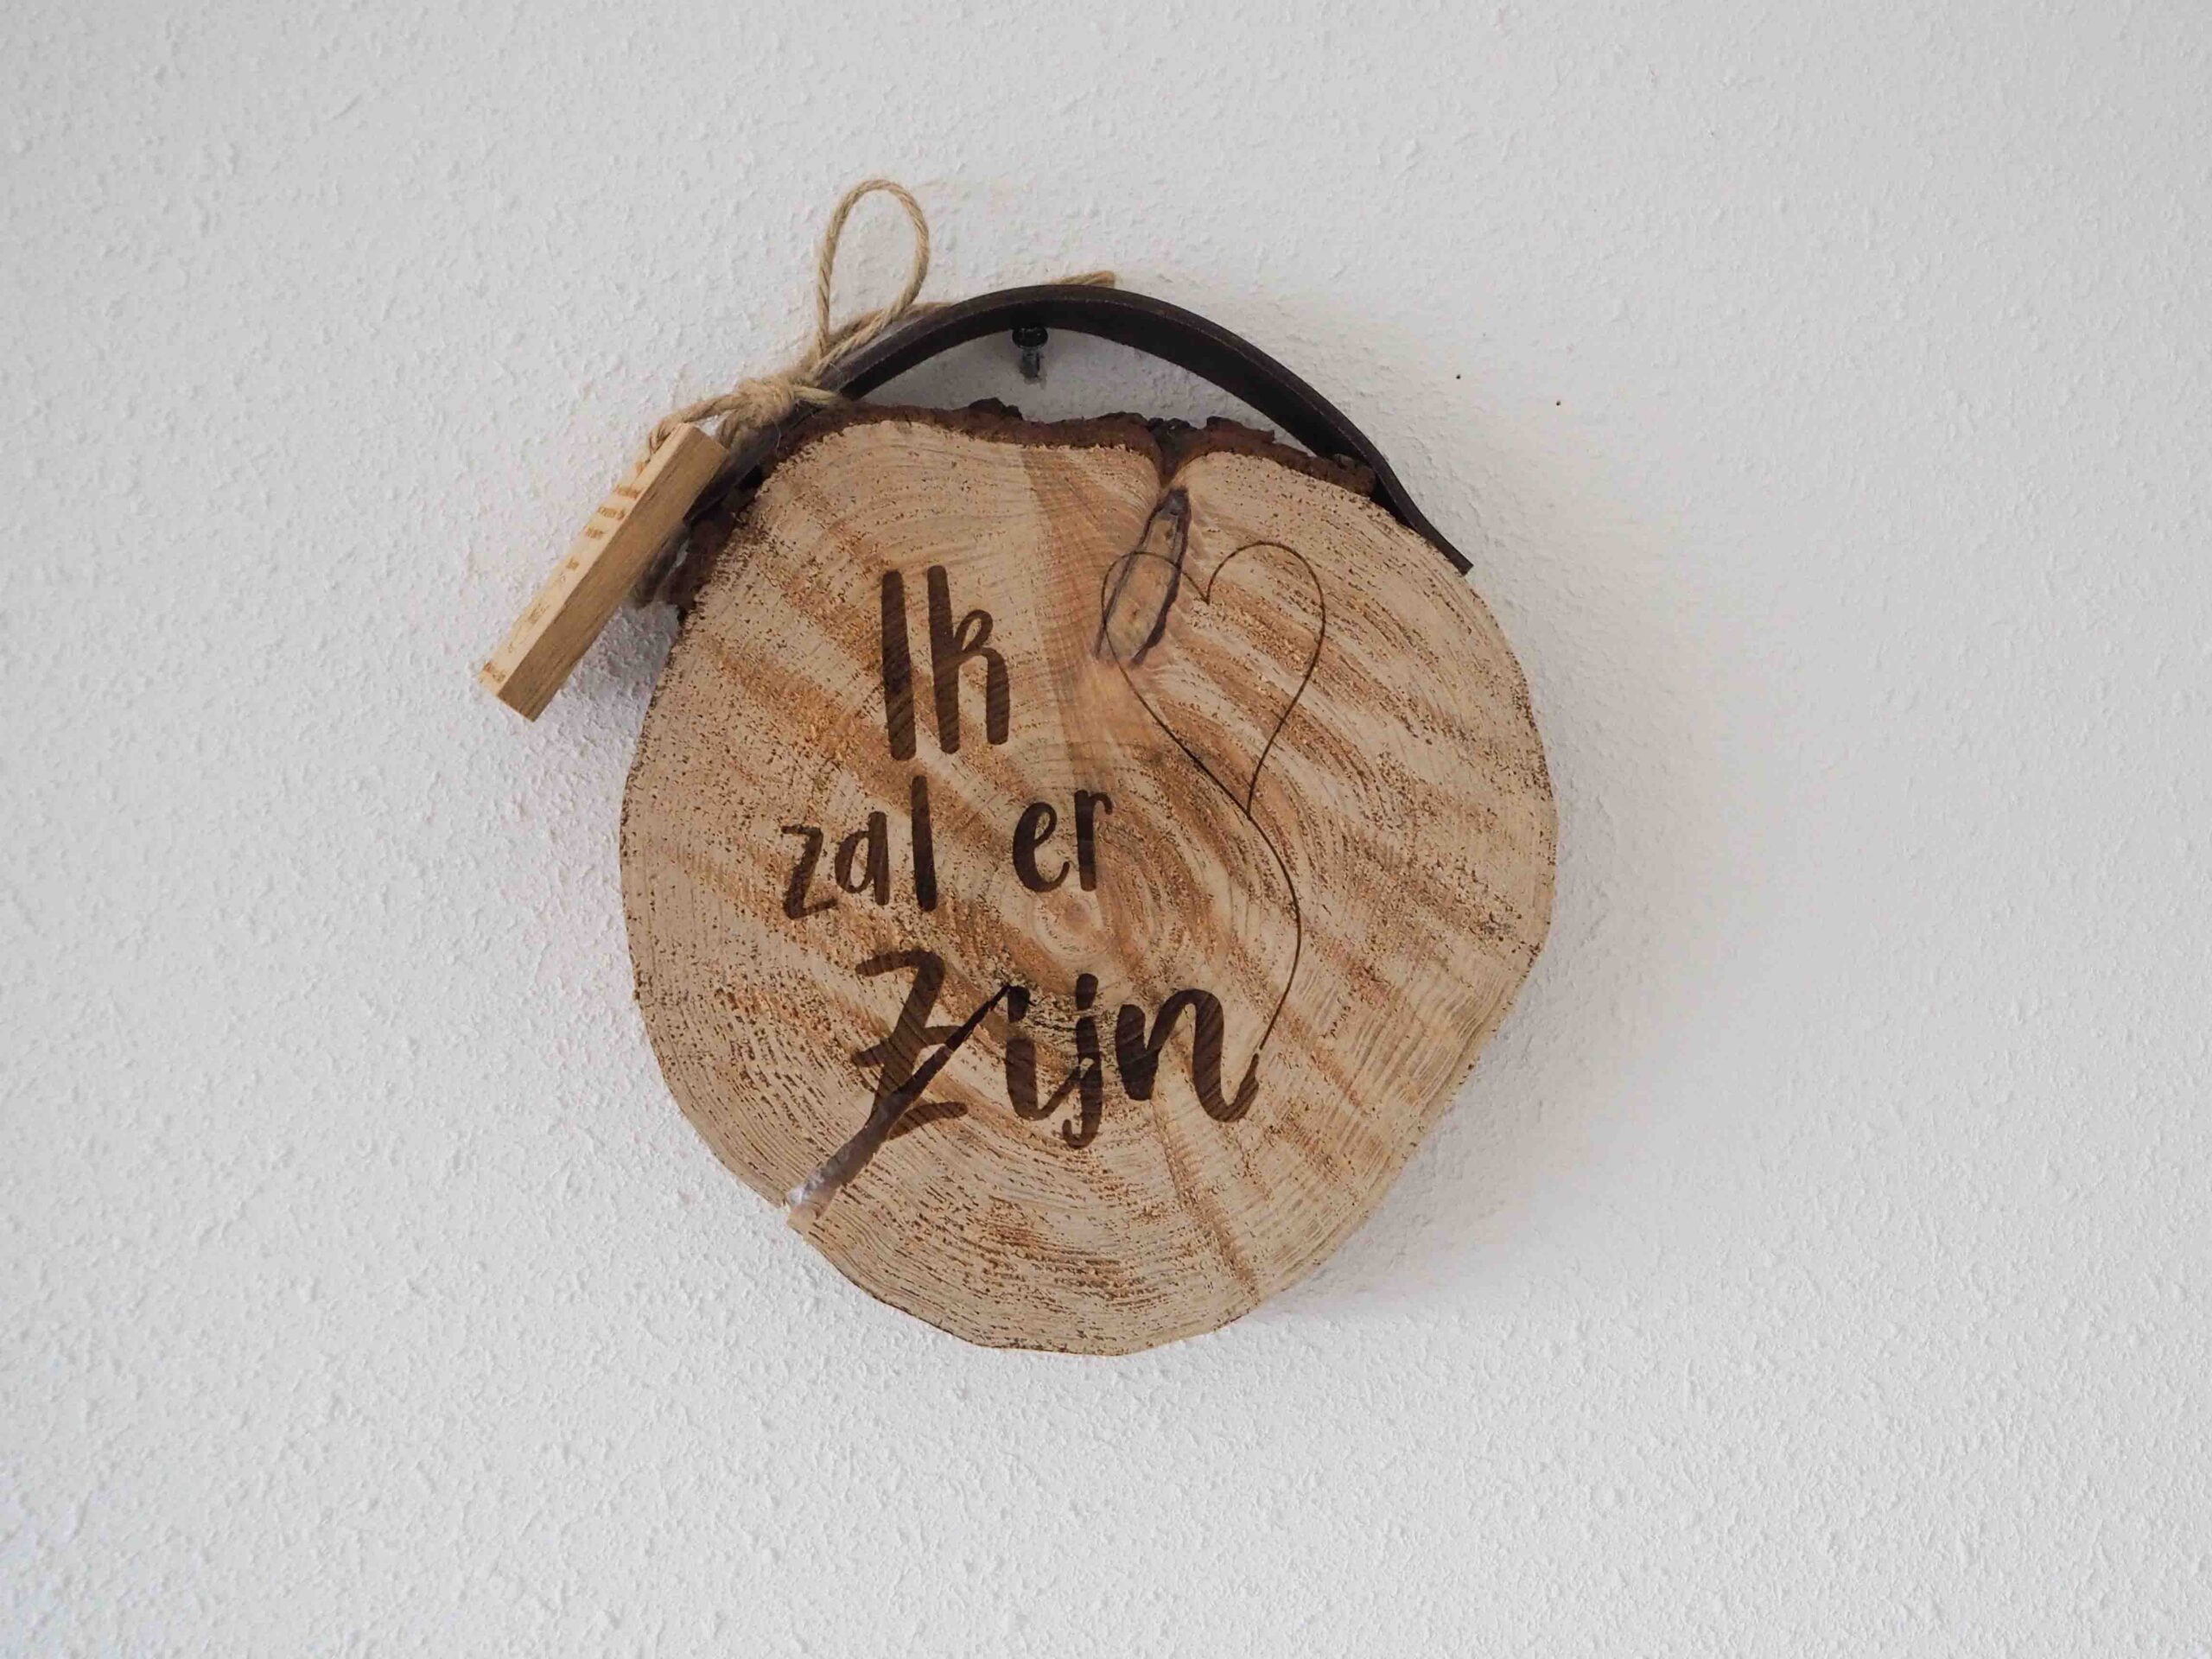 Ik
zal er
Zijn